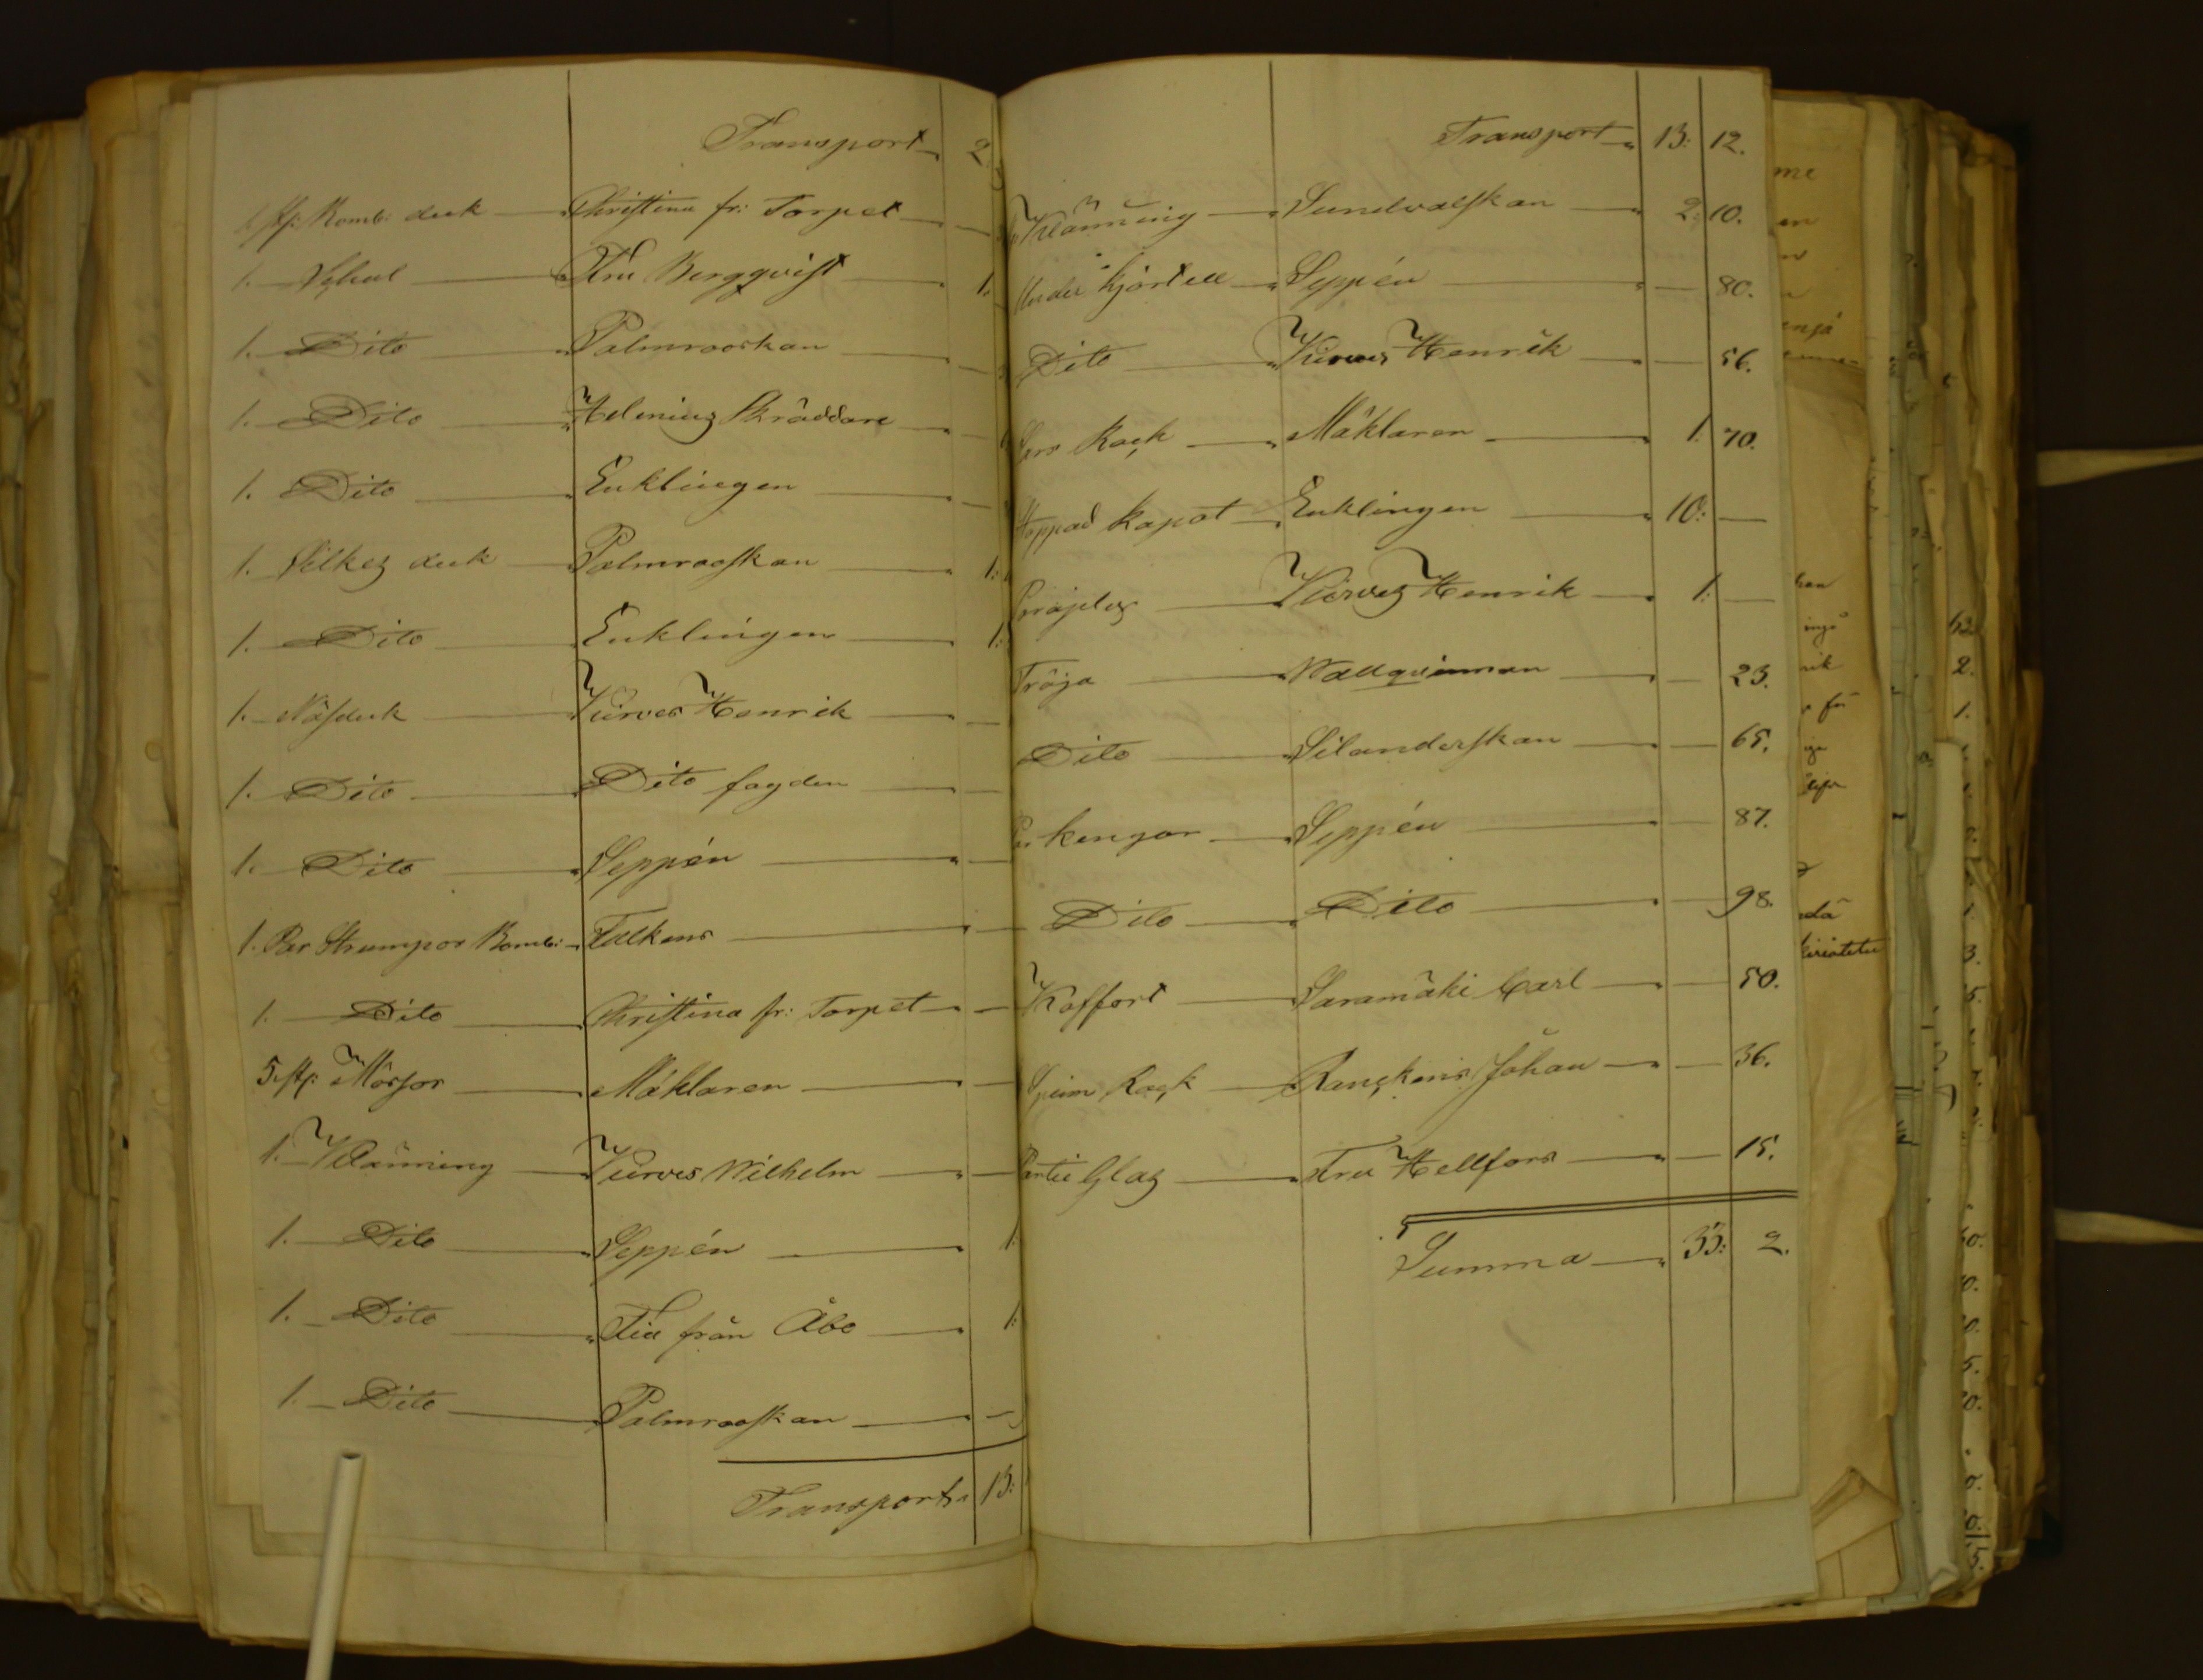 Transport 2
1 st: Komb: duk Christina fr: Torpet
1. Schal Fru Bergqvist 1.
1. Dito Palmrooskan
1. Dito Helenius Skräddare
1. Dito Enklingen
1. Silkes duk Palmrooskan 1:
1. Dito Enklingen 1:
1. Näsduk Kurves Henrik
1. Dito Dito fagden
1. Dito Seppén
1. Par Strumpor Bomb: Falkens
1. Dito Christina fr: Torpet
5 st: Mössor Mäklaren
1. Klänning Kurves Wilhelm
1. Dito Seppén 1:
1. Dito Fia från Åbo 1:
1. Dito Palmrooskan
Transport 13:
Transport 13: 12.
Klänning Sundvalskan 2: 10.
Under kjortell Seppén 80.
Dito Kurves Henrik 56.
Rock Mäklaren 1. 70.
Stoppad Kapot Enklingen 10:
Kurves Henrik 1:
Tröja Wallqvinnan 23.
Dito Silanderskan 65.
Par kengor Seppén 87.
Dito Dito 98.
Koffort Saramäki Carl 50.
Rock Ranckens Johan 36.
Partie Glas Fru Hellfors 15.
Summa 33: 2.